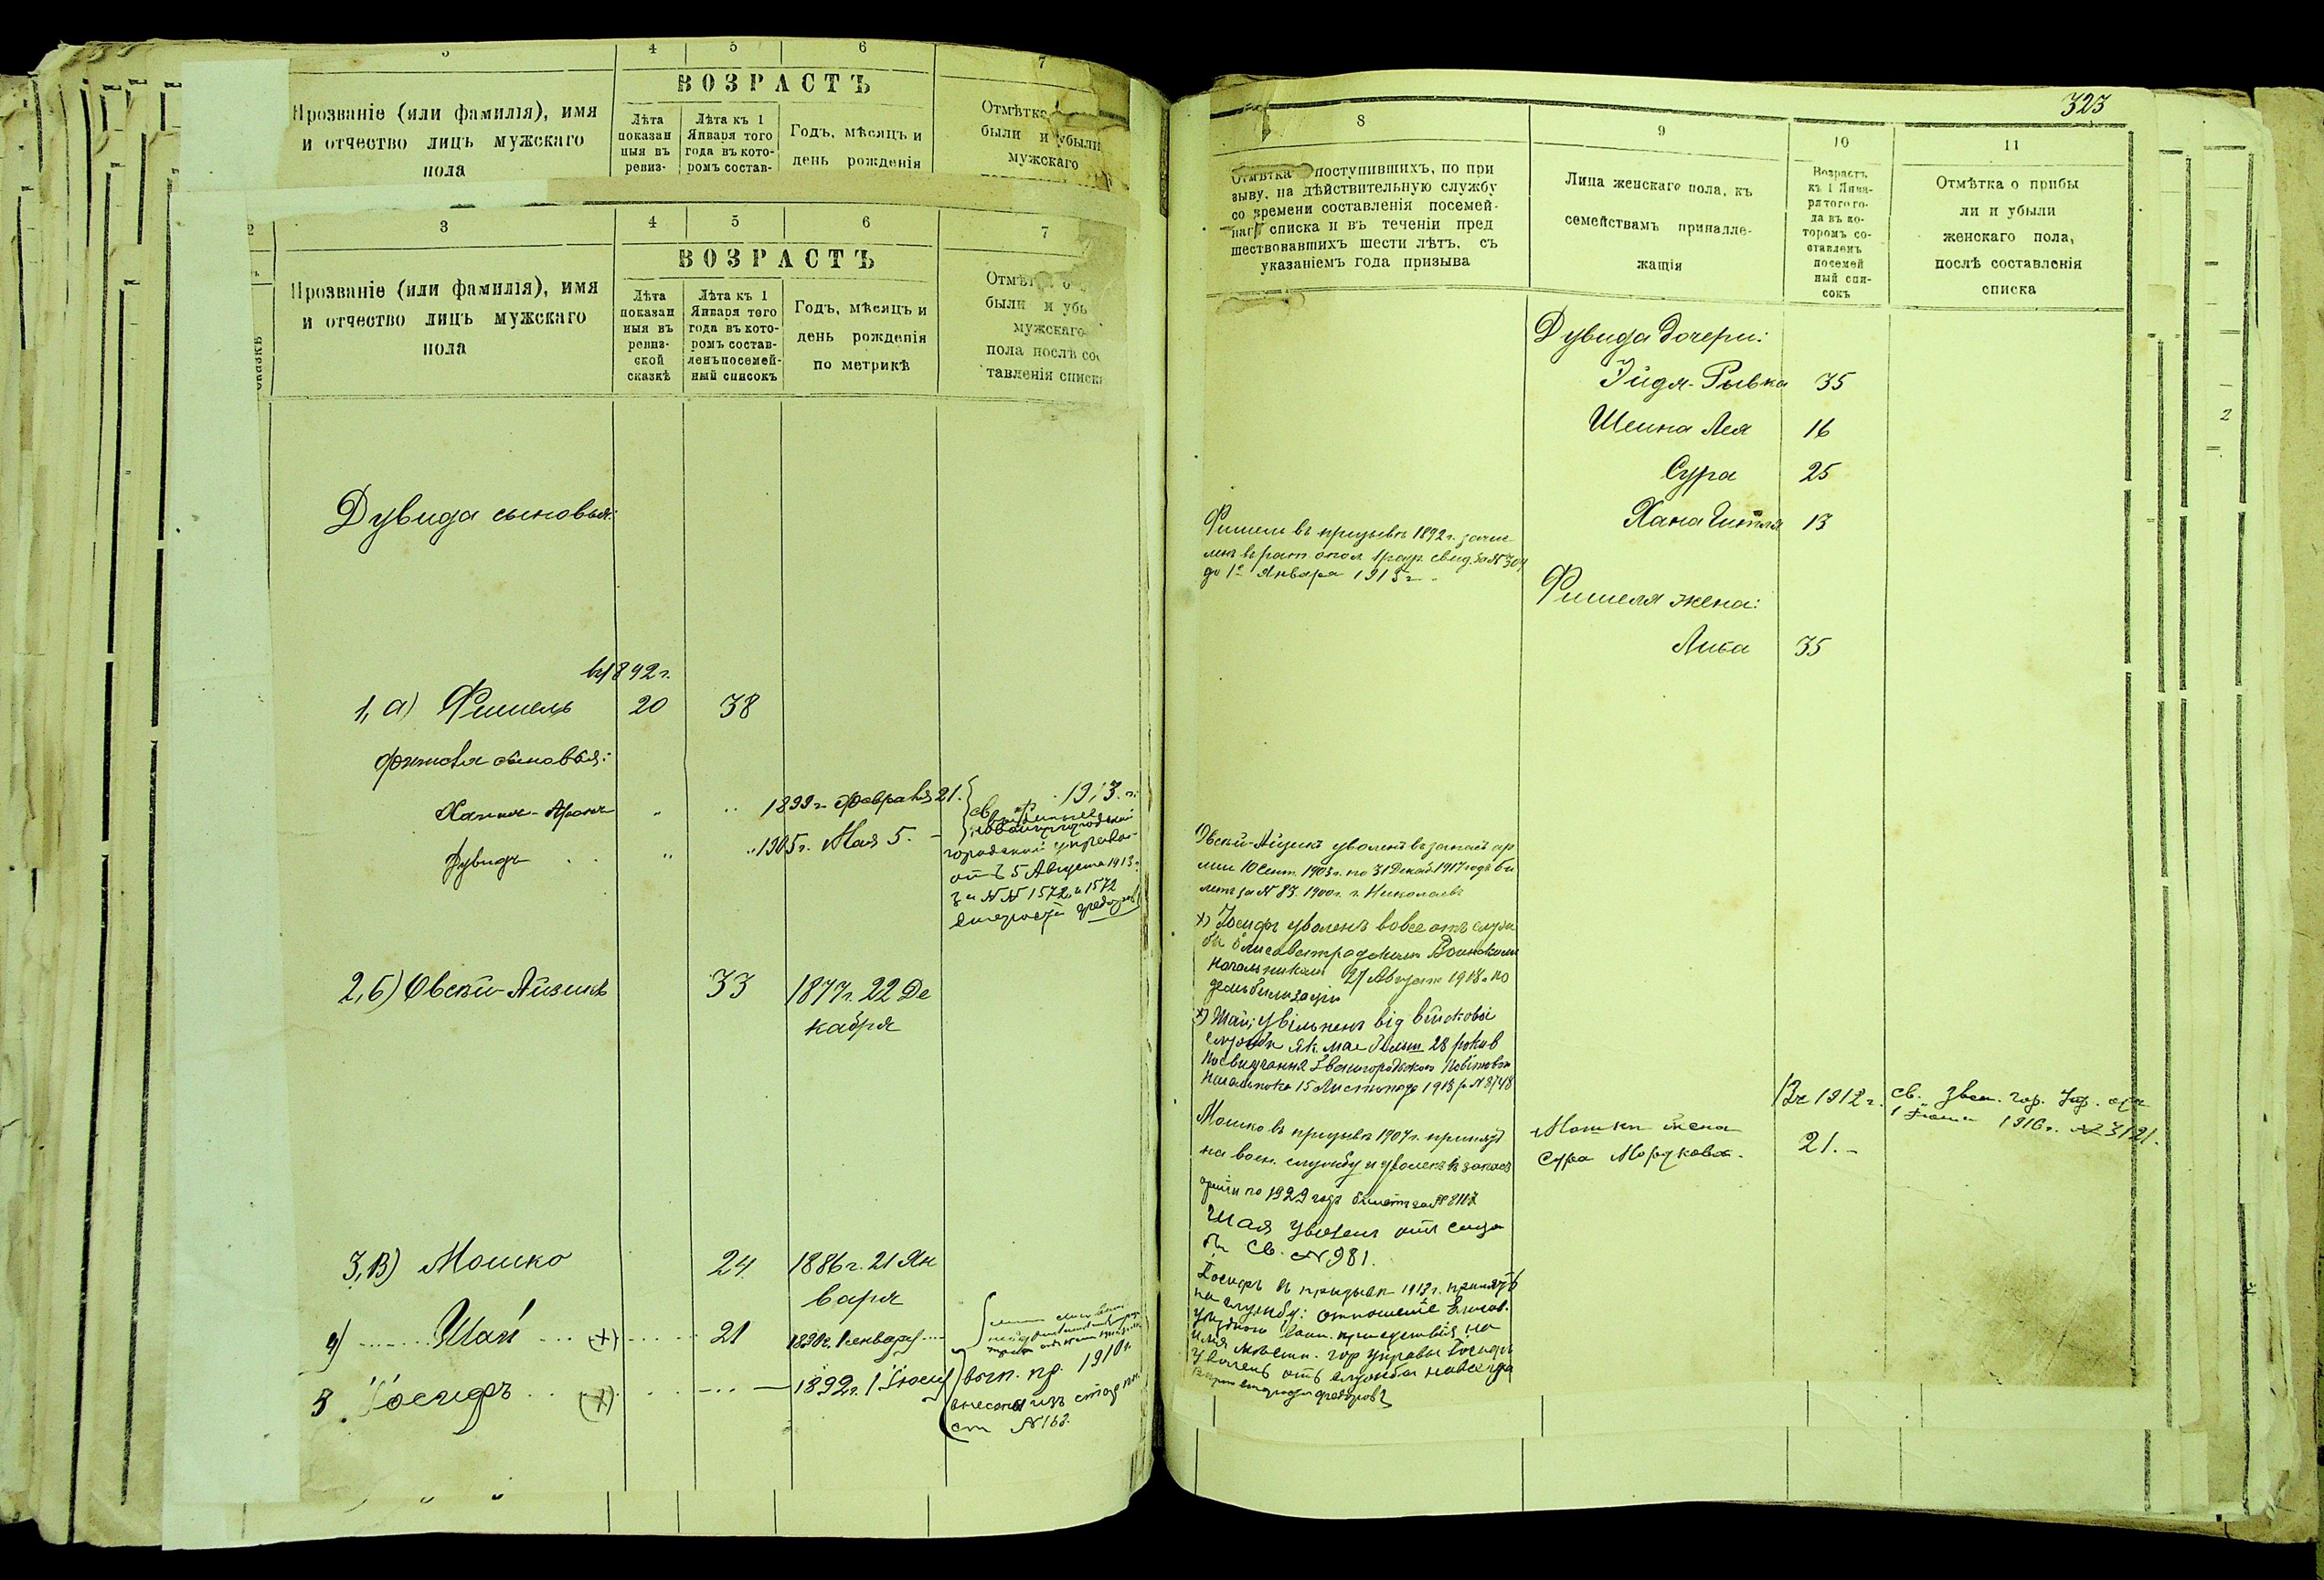 3 4 5 6 7
Прозваніе (или фамилія), имя
и отчество лицъ мужскаго
пола
ВОЗРАСТЪ
Лѣта
показан
ныя въ
ревиз-
Лѣта къ 1
Января того
года въ кото-
ромъ состав-
Годъ, мѣсяцъ и
день рожденія
Отмѣтка
были и убыли
мужскаго
2 3 4 5 6 7
Прозваніе (или фамилія), имя
и отчество лицъ мужскаго
пола
ВОЗРАСТЪ
Лѣта
показан
ныя въ
ревиз-
ской
сказкѣ
Лѣта къ 1
Января того
года въ кото-
ромъ состав-
ленъ посемей-
ный списокъ
Годъ, мѣсяцъ и
день рожденія
по метрикѣ
Отмѣт о
были и убы
мужскаго
пола послѣ сос
тавленія списка
Дувида сыновья:
въ 1892 г.
1, а) Фишель 20 38
Фишеля сыновья:
Аронъ 1899 г. Февраля 21.
Дувидъ 1905 г. Мая 5.
1913 г.
городской
отъ 5 Августа 1913 г.
за NN 1572 и 1572
2, б) Овсей-Айзикъ 33 1877 г. 22 Де
кабря
3, в) Мошко 24 1886 г. 21 Ян
варя
4) Шая (+) 21 1890 г. 1 января
5 Іосифъ (+) 1892 г. 1 Іюня
пр. 1910 г.
внесены изъ
ст N 162.
323
8 9 10 11
Отмѣтка поступившихъ, по при
зыву, на дѣйствительную службу
со времени составленія посемей-
наг списка и въ теченіи пред
шествовавшихъ шести лѣтъ, съ
указаніемъ года призыва
Лица женскаго пола, къ
семействамъ принадле-
жащія
Возрастъ
къ 1 Янва-
ря того го-
да въ ко-
торомъ со-
ставленъ
посемей
ный спи-
сокъ
Отмѣтка о прибы
ли и убыли
женскаго пола,
послѣ составленія
списка
Дувида дочери:
Эйдя-Рывка 35
Шейна Лея 16
Сура 25
Хана Гитля 13
Фишель въ призывъ 1892 г. зачис
ленъ въ рат. опол. 1 разр. свид. за N 304
до 1го Января 1915 г.
Фишеля жена:
Либа 35
Овсей-Айзикъ уволенъ въ запасъ ар
міи 10 Сент. 1903 г. по 31 Декаб. 1917 года би
летъ за N 83. 1900 г. г. Николаевъ
+) Іосифъ уволенъ вовсе отъ служ
бы Елисаветградскимъ Воинскимъ
Начальникомъ 27 Августа 1918 г. по
демобилизаціи
+) Шая увільнен від військовоі
служби як має більш 28 років
посвидчання Звенигородського Повітового
Начальника 15 Листопада 1918 р. N 8748
Мошко въ призывъ 1907 г. принятъ
на воен. службу и уволенъ въ запасъ
арміи по 1929 годъ билетъ за N
Шая уволенъ отъ служ
бы св. N 981.
Іосифъ въ призывъ 1913 г. принятъ
на службу: отношеніе
уѣзднаго воин. присутствія на
имя гор управы Іосифъ
уволенъ отъ службы навсегда
Въ 1912 г. св. Звен. гор. Упр. отъ
1916 г. N 3121.
Мошки жена
Сура Морткова 21.
2